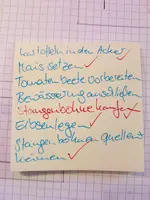 Kartoffeln in den Acker
Mais setzen ✓
Tomatenbeete vorbereiten
Bewässerung anschließen
Stangenbohne kaufen ✓
Erbsen legen ✓
Stangenbohnen quellen +
keimen ✓